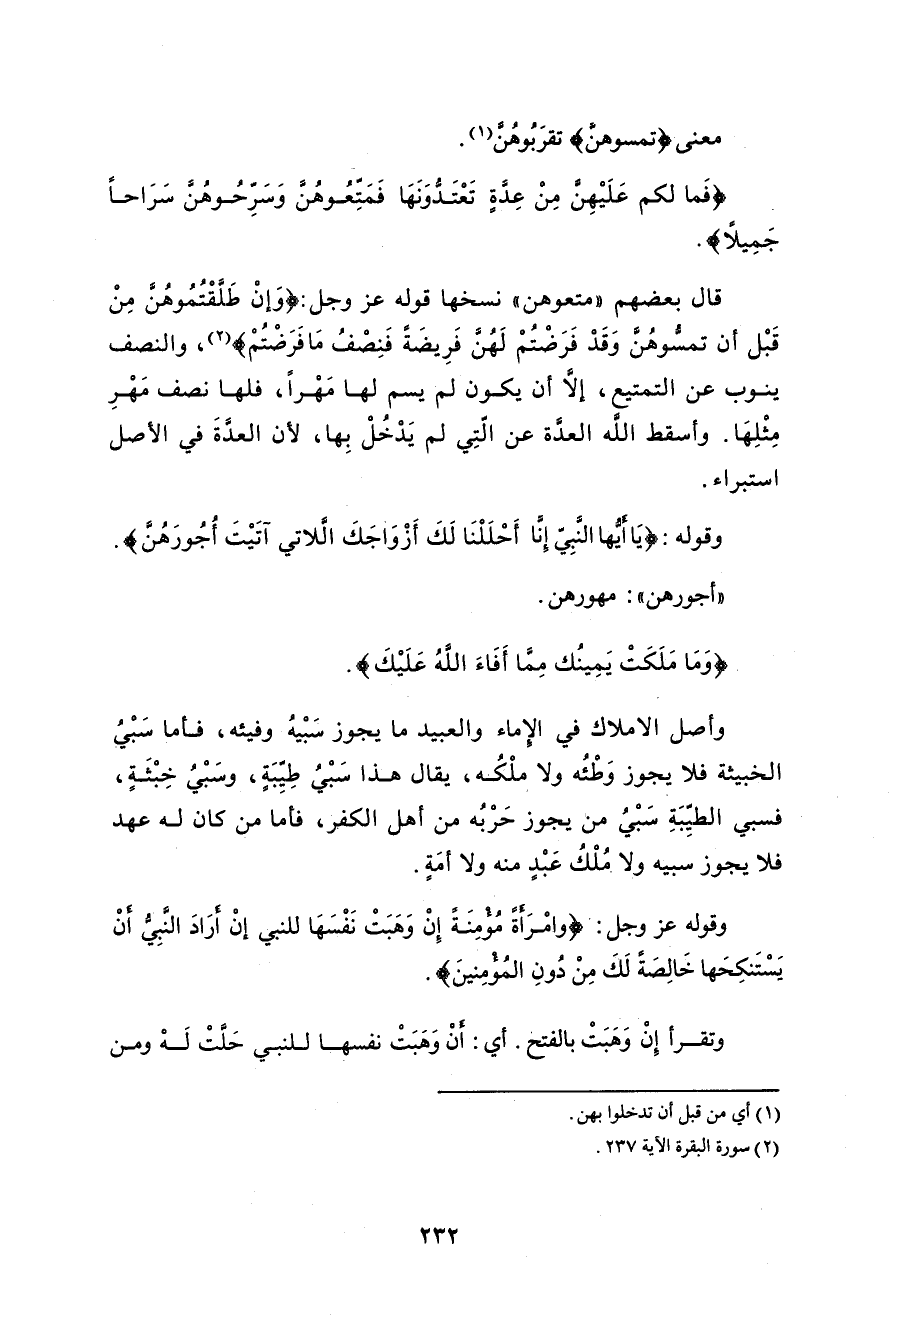 معنى ﴿تمسوهنَّ﴾ تقرَبُوهُنَّ(١).
﴿فَما لكم عَلَيْهِنَّ مِنْ عِدَّةٍ تَعْتَدُّونَهَا فَمَتِّعُوهُنَّ وَسَرِّحُوهُنَّ سَرَاحاً
جَمِيلًا﴾.
قال بعضهم «متعوهن» نسخها قوله عز وجل: ﴿وَإنْ طَلَّقْتُمُوهُنَّ مِنْ
قَبْل أن تمسُّوهُنَّ وَقَدْ فَرَضْتُمْ لَهُنَّ فَرِيضَةً فَنِصْفُ مَا فَرَضْتُمْ﴾(٢)، والنصف
ينوب عن التمتيع، إلَّا أن يكون لم يسم لها مَهْراً، فلها نصف مَهْرِ
مِثْلِهَا. وأسقط اللَّه العدَّة عن الّتِي لم يَدْخُلْ بِها، لأن العدَّةَ في الأصل
استبراء.
وقوله: ﴿يَا أَيُّها النَّبِيّ إنَّا أَحْلَلْنَا لَكَ أَزْوَاجَكَ الَّلاتي آتَيْتَ أُجُورَهُنَّ﴾.
«أجورهن»: مهورهن.
﴿وَمَا مَلَكَتْ يَمِينُك مِمَّا أَفَاءَ اللَّهُ عَلَيْكَ﴾.
وأصل الاملاك في الإماء والعبيد ما يجوز سَبْيهُ وفيئه، فأما سَبْيُ
الخبيثة فلا يجوز وَطْئُه ولا ملْكُه، يقال هذا سَبْيُ طِيِّبَةٍ، وسَبْيُ خِبْثَةٍ،
فسبي الطيِّبَةِ سَبْيُ من يجوز حَرْبُه من أهل الكفر، فأما من كان له عهد
فلا يجوز سبيه ولا مُلْكُ عَبْدٍ منه ولا أمَةٍ.
وقوله عز وجل: ﴿وامْرَأَةً مُؤْمِنَةً إِنْ وَهَبَتْ نَفْسَهَا للنبي إنْ أَرَادَ النَّبِيُّ أَنْ
يَسْتَنكِحَها خَالِصَةً لَكَ مِنْ دُونِ المُؤْمِنينَ﴾.
وتقرأ إنْ وَهَبَتْ بالفتح. أي: أَنْ وَهَبَتْ نفسها للنبي حَلَّتْ لَهْ ومن
(١) أي من قبل أن تدخلوا بهن.
(٢) سورة البقرة الآية ٢٣٧.
٢٣٢